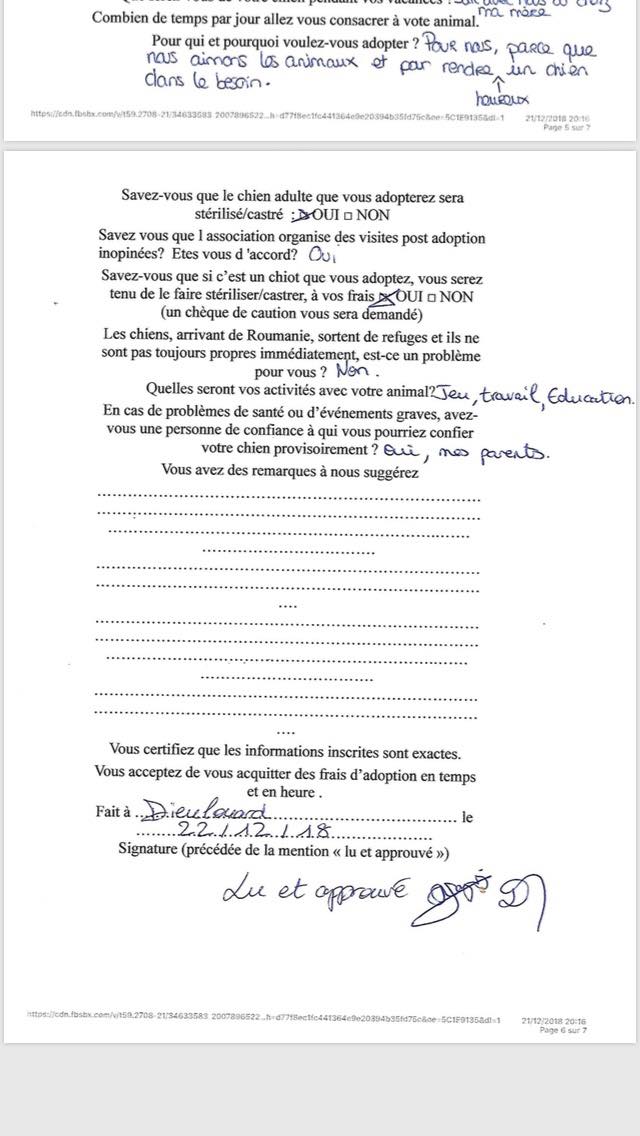 ma mère
Combien de temps par jour allez vous consacrer à vote animal.
Pour qui et pourquoi voulez-vous adopter ? Pour nous, parce que
nous aimons les animaux et par rendre un chien
heureux
dans le besoin.
https://cdn.fbsbx.com/v/t59.2708-21/34633583_2007896522...h=d77f8ec1fc441364e9e20394b35fd75c&oe=5C1F9135&dl=1 21/12/2018 20:16
Page 5 sur 7
Savez-vous que le chien adulte que vous adopterez sera
stérilisé/castré : OUI □ NON
Savez vous que l association organise des visites post adoption
inopinées? Etes vous d 'accord? Oui
Savez-vous que si c’est un chiot que vous adoptez, vous serez
tenu de le faire stériliser/castrer, à vos frais OUI □ NON
(un chèque de caution vous sera demandé)
Les chiens, arrivant de Roumanie, sortent de refuges et ils ne
sont pas toujours propres immédiatement, est-ce un problème
pour vous ? Non.
Quelles seront vos activités avec votre animal? Jeu, travail, Education.
En cas de problèmes de santé ou d’événements graves, avez-
vous une personne de confiance à qui vous pourriez confier
votre chien provisoirement ? Oui, mes parents.
Vous avez des remarques à nous suggérez
Vous certifiez que les informations inscrites sont exactes.
Vous acceptez de vous acquitter des frais d’adoption en temps
et en heure .
Fait à Dieulouard le
22/12/18
Signature (précédée de la mention « lu et approuvé »)
Lu et approuvé
https://cdn.fbsbx.com/v/t59.2708-21/34633583_2007896522...h=d77f8ec1fc441364e9e20394b35fd75c&oe=5C1F9135&dl=1 21/12/2018 20:16
Page 6 sur 7